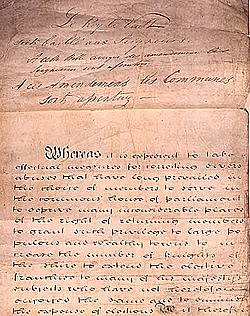 Le Roy le Veult
Soit baillé aux Seigneurs
A cette Bille avecque des amendemens les
Seigneurs sont assentus
A ces Amendemens les Communes
sont assentus
Whereas it is expedient to take
effectual measures for correcting divers
abuses that have long prevailed in
the choice of members to serve in
the commons house of parliament
to deprive many inconsiderable places
of the right of returning members
to grant such privilege to large po
pulous and wealthy towns to in
crease the number of knights of
the shire to extend the elective
franchise to many of his majesty's
subjects who have not heretofore
enjoyed the same and to diminish
the expense of elections Be it therefore